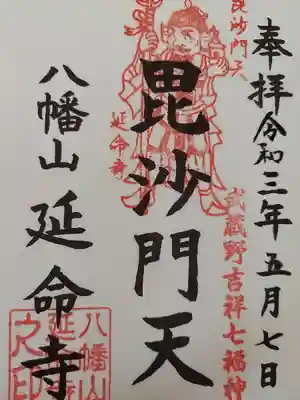 奉拝令和三年五月七日
武蔵野吉祥七福神
毘沙門天
延命寺
毘沙門天
八幡山延命寺
八幡山
延命寺
之印